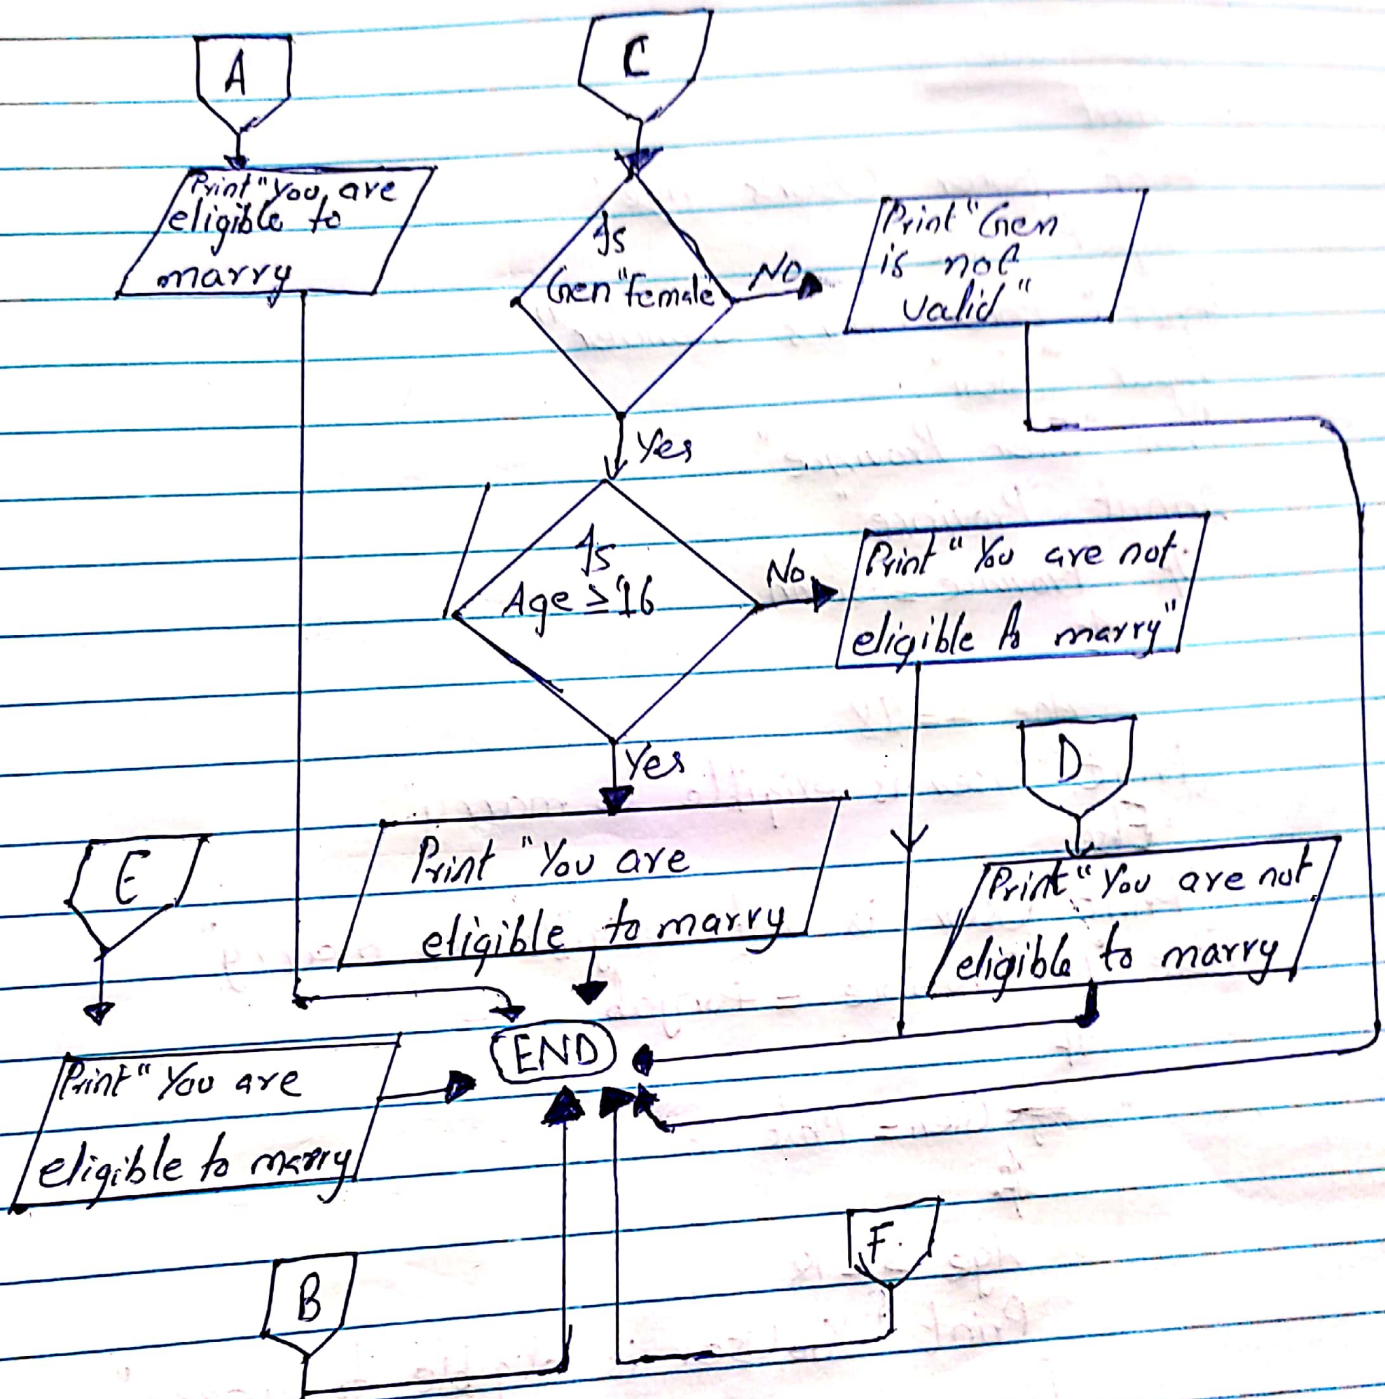 A
C
Print "You are
eligible to
marry
Is
Gen "female"
No
Print "Gen
is not
valid"
Yes
Is
Age ≥ 16
No
Print "You are not
eligible to marry"
Yes
D
E
Print "You are
eligible to marry
Print "You are not
eligible to marry
END
Print "You are
eligible to marry
F
B